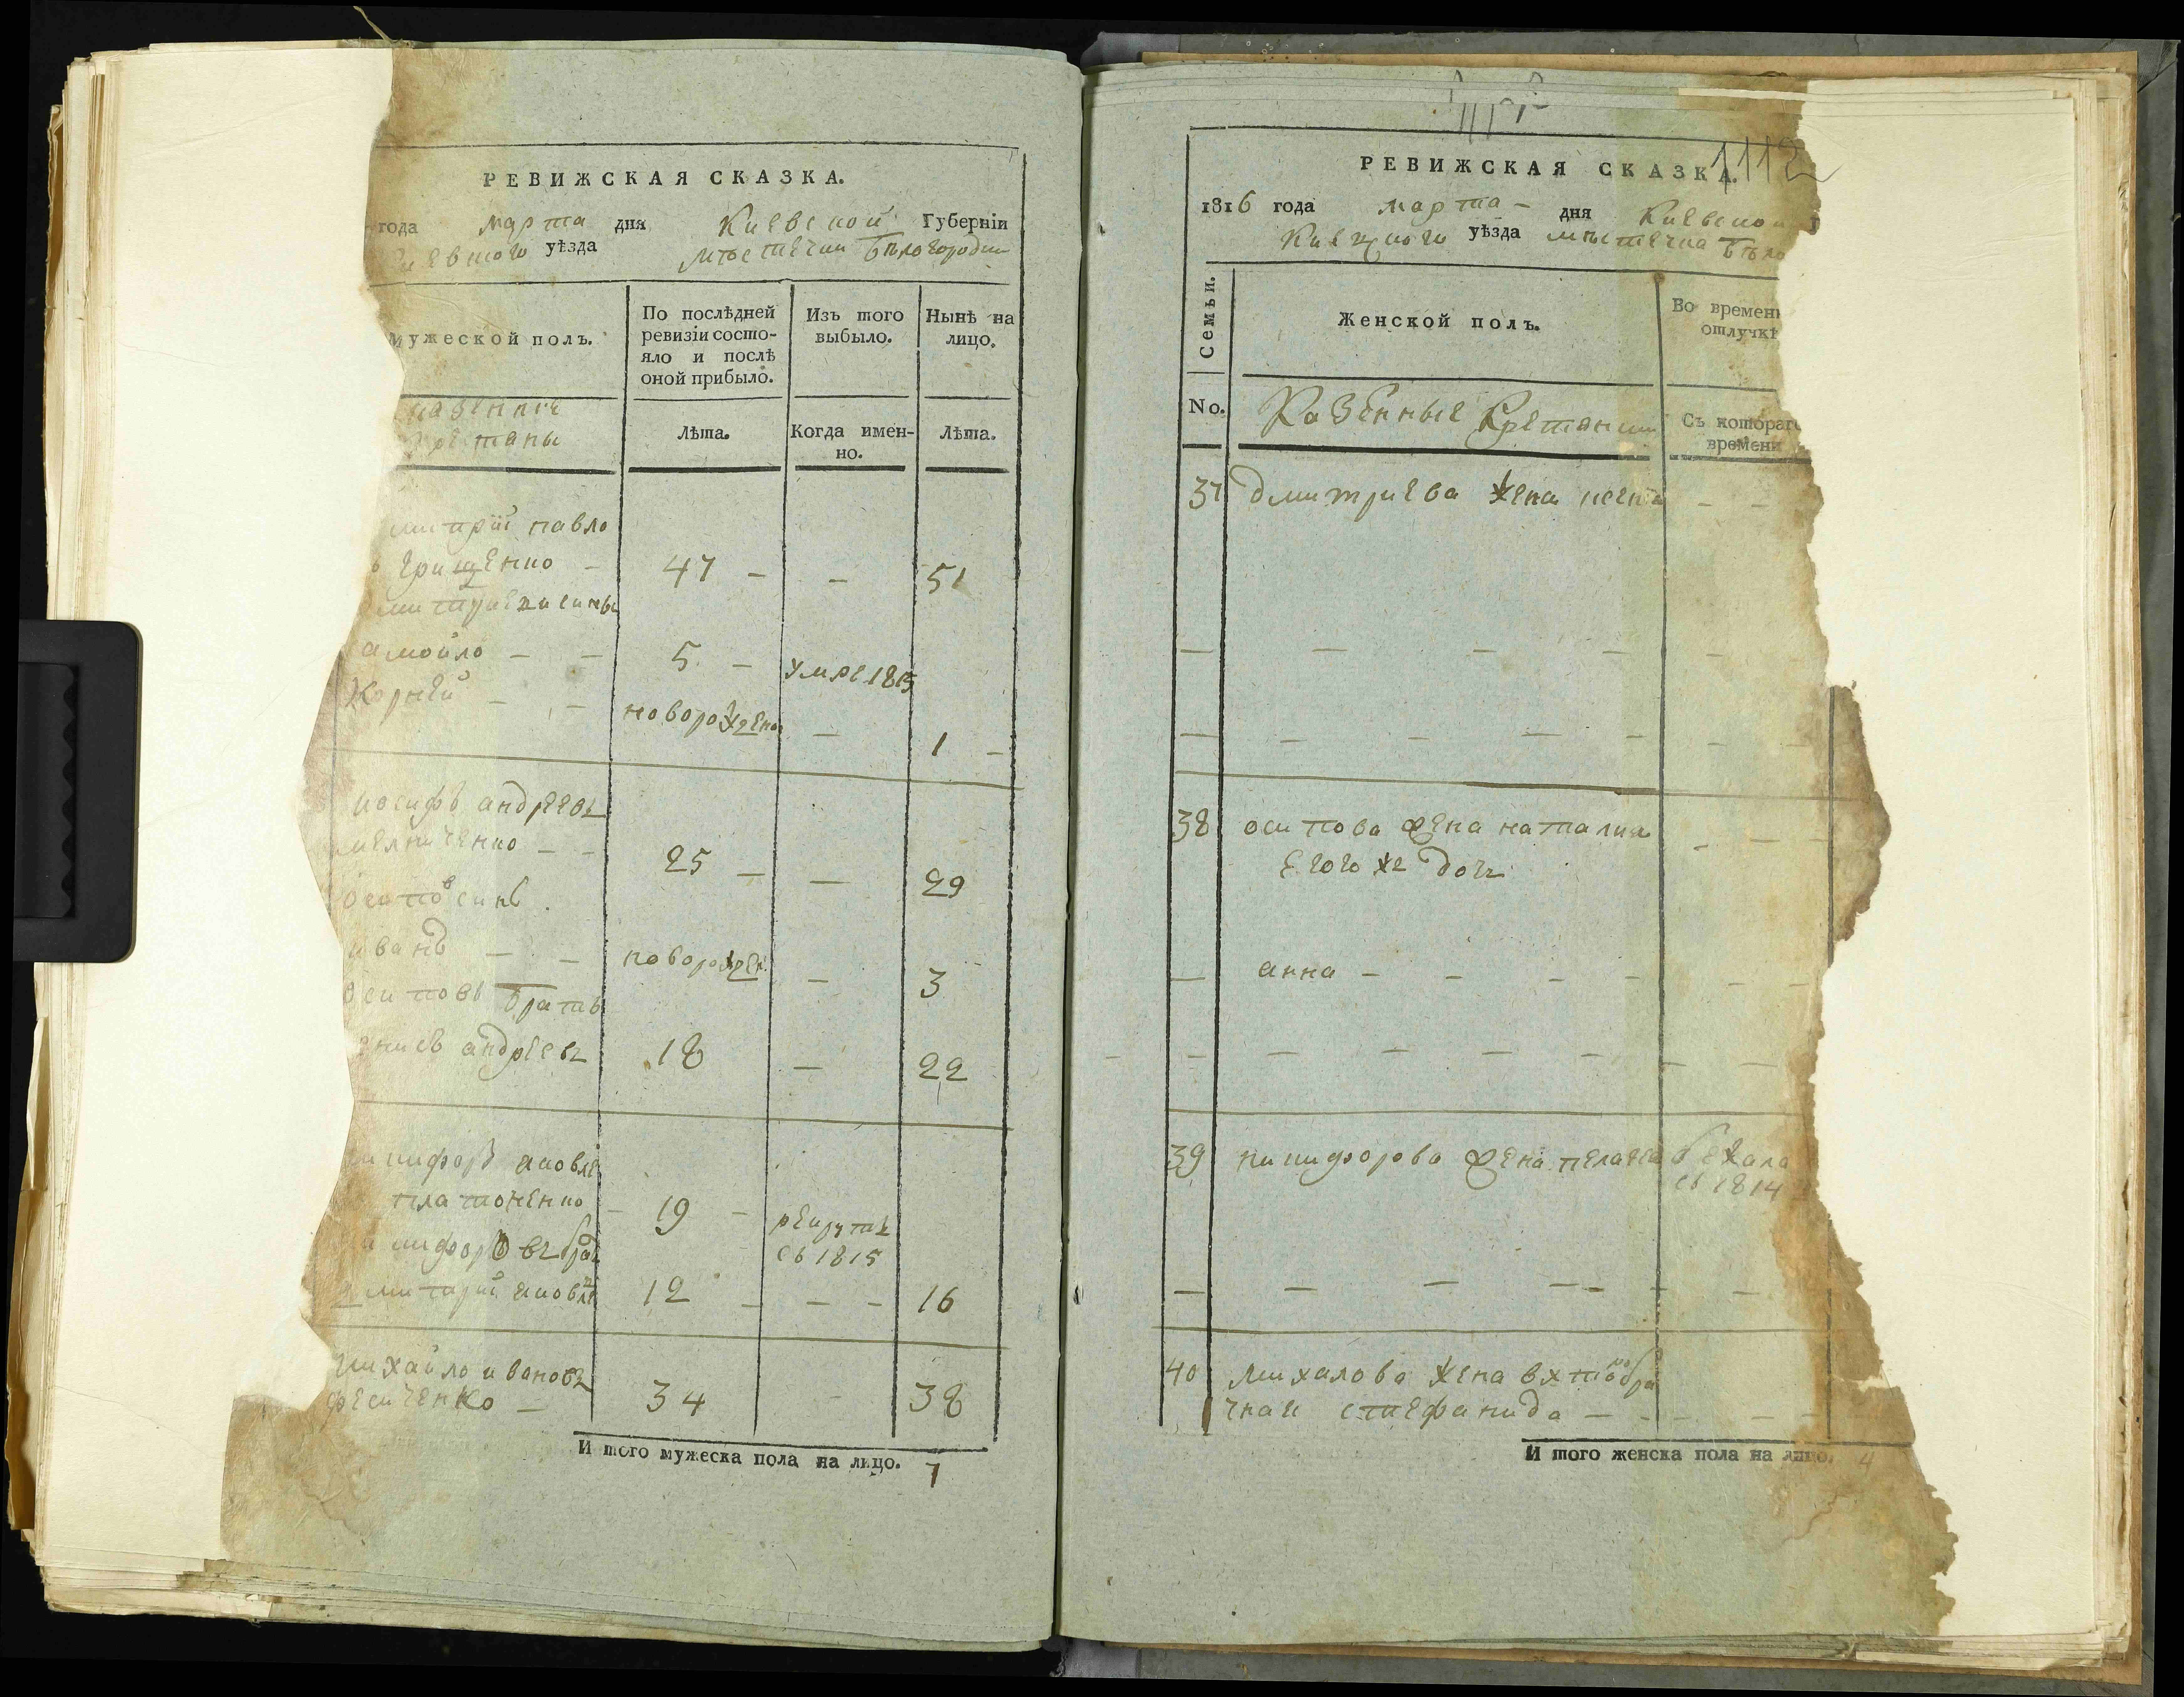 РЕВИЖСКАЯ СКАЗКА.
года марта дня Киевской Губерніи
уѣзда мѣстечки Бѣлогородки
Мужеской полъ.
По послѣдней ревизіи состо-
яло и послѣ
оной прибыло.
Изъ того
выбыло.
Нынѣ на
лицо.
Лѣта.
Когда имен-
но.
Лѣта.
митрій павло
грищенко – 47 – – 51
амойло – – 5 – умре 1815
Корней – – новорожден – 1 –
иосифъ андреевъ
мелниченко – – 25 – – 29
осипов синъ
иванъ – – новорожден – 3
осиповъ братъ
енисъ андреевъ 18 – 22
икифоръ яковле
платоненко – 19 – рекрутъ
съ 1815
дмитрій яковле 12 – – – 16
михайло ивановъ
фесиченко – 34 – 38
И того мужеска пола на лицо. 7
1112
РЕВИЖСКАЯ СКАЗКА.
1816 года марта – дня Киевской
уѣзда мѣстечка Бѣло
Семьи.
Женской полъ.
Во времен
отлучкѣ
No.
Казенные Крстянки
Съ котораго
времени
37 дмитриева жена – –
38 осипова жена наталия – – –
его же дочь
– анна – – – – – –
39 никифорова жена пелагея бежала
съ 1814
40 михалова жена втораобра
чная стефанида – – – – –
И того женска пола на лицо. 4